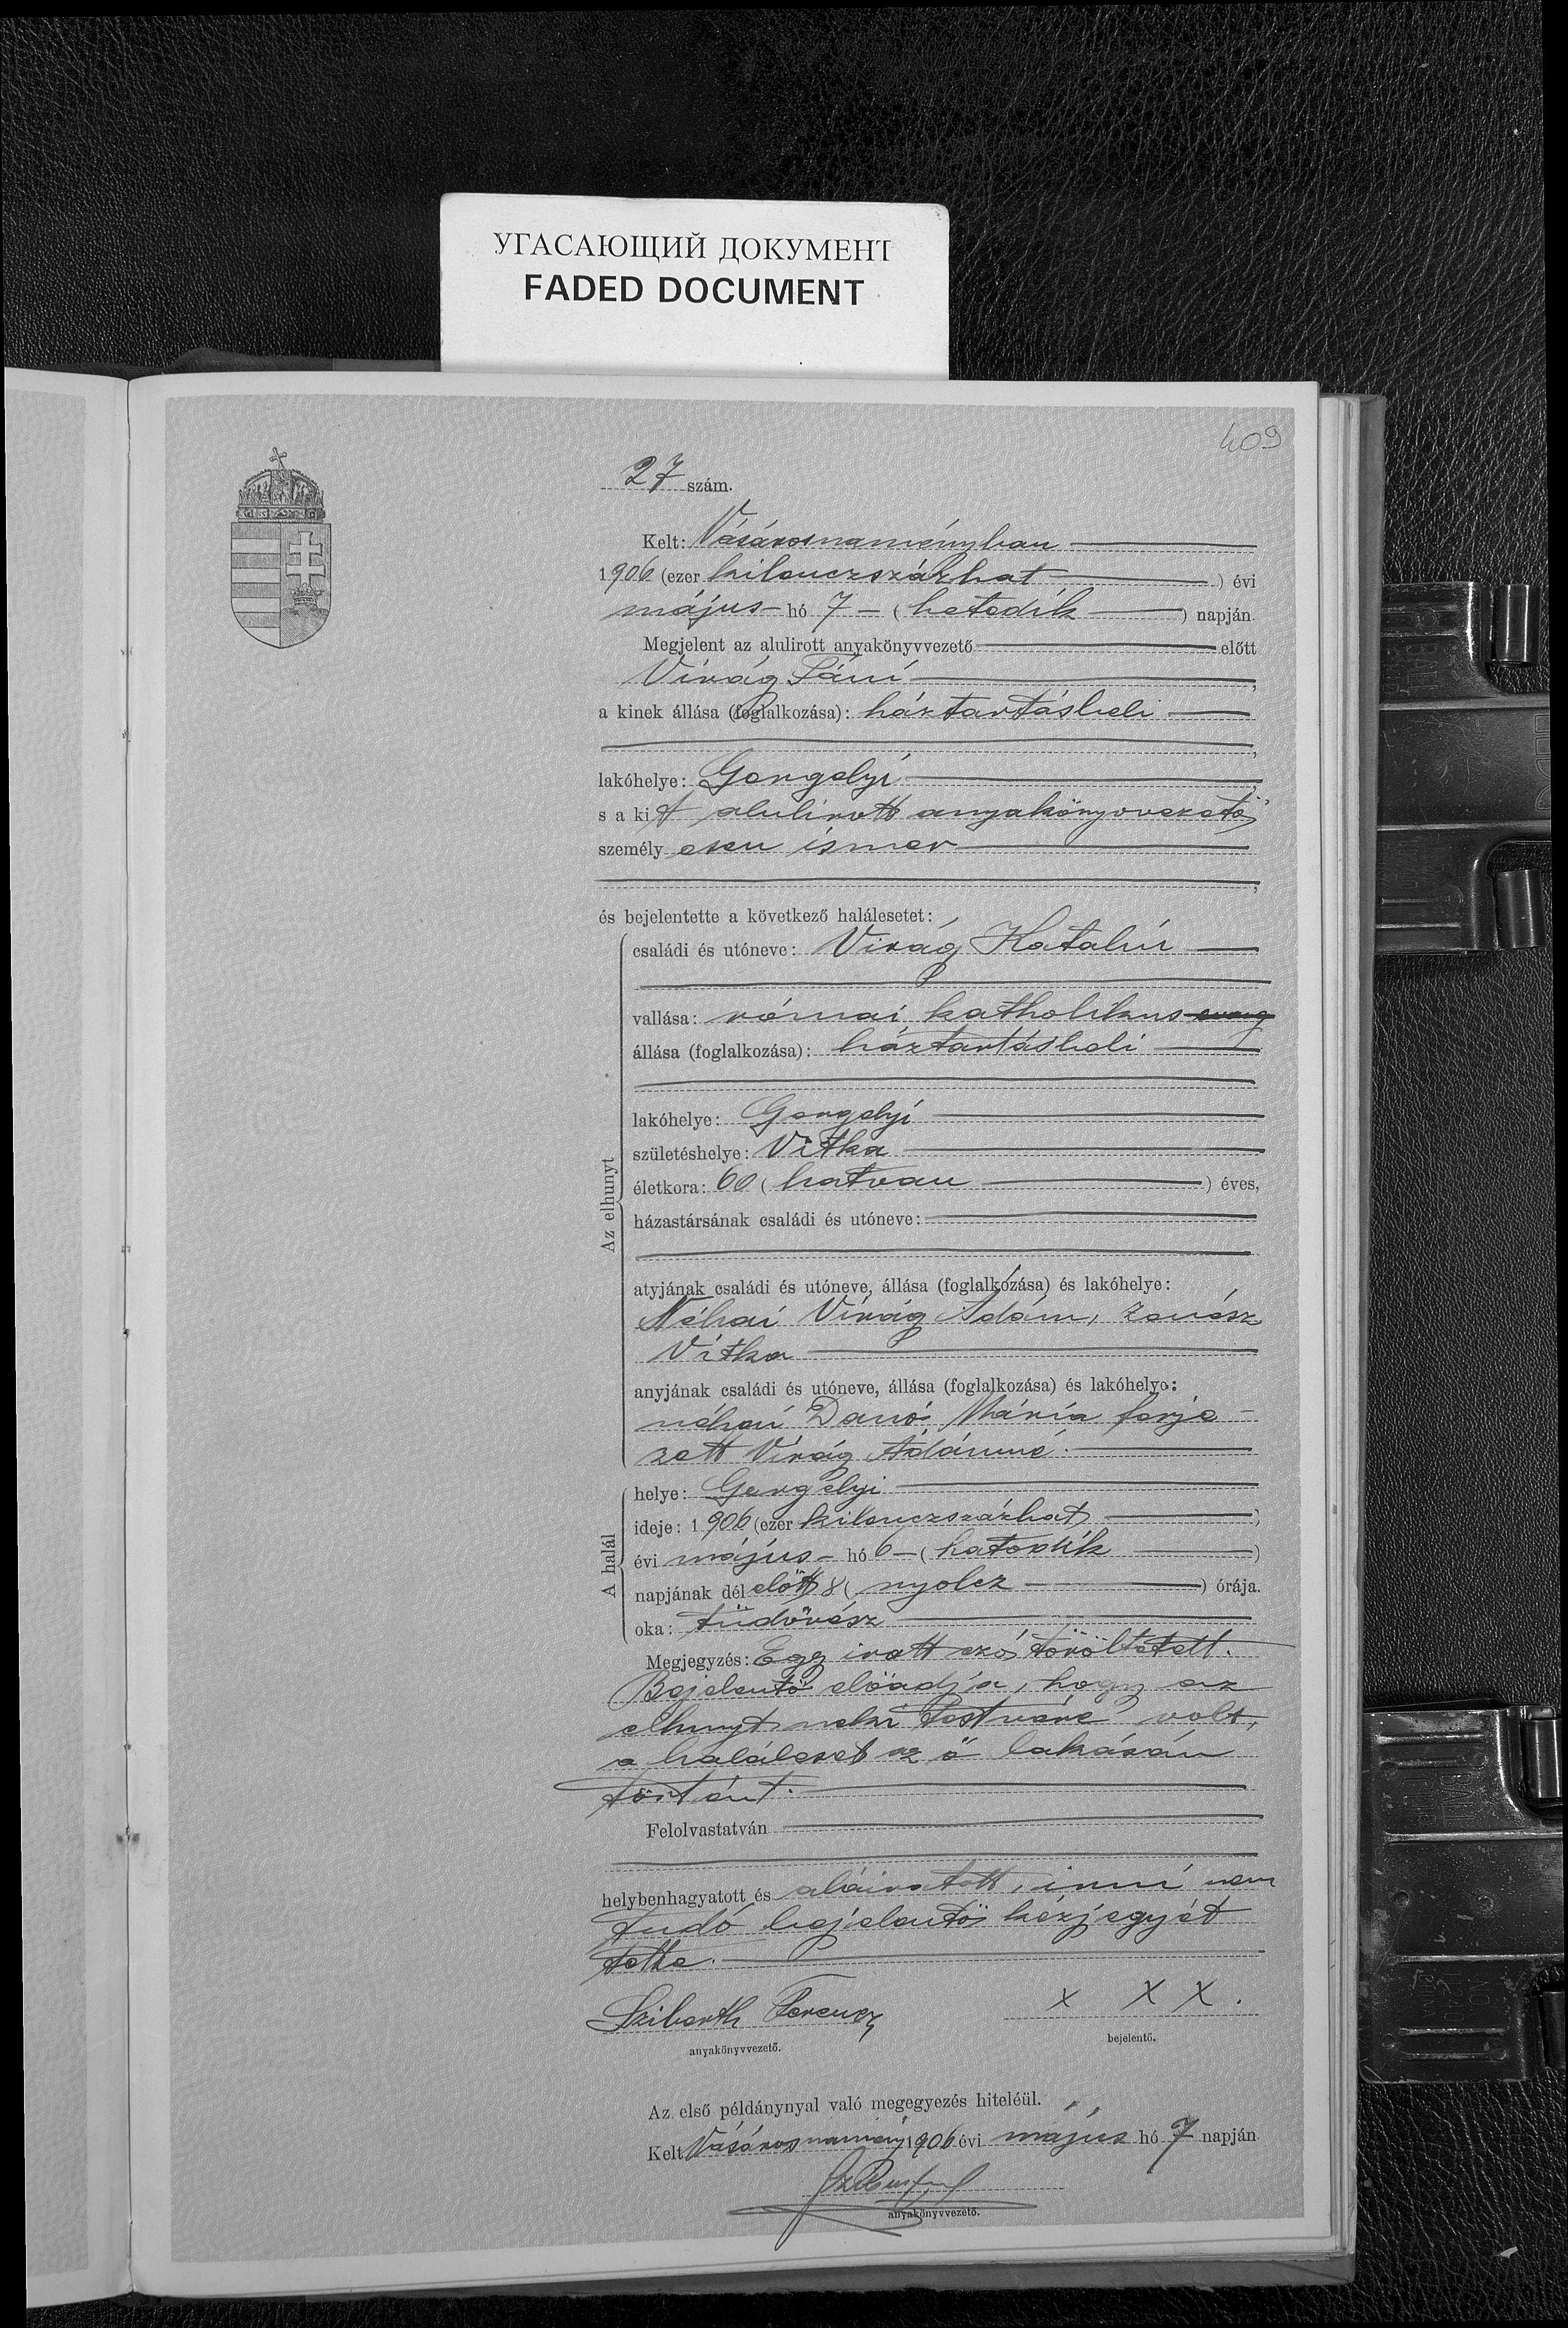 УГАСАЮЩИЙ ДОКУМЕНТ
FADED DOCUMENT
409
27 szám.
Kelt: Vásárosnaményban
1906 (ezer kilenczszázhat) évi
május hó 7 (hetedik) napján.
Megjelent az alulirott anyakönyvvezető előtt
Virág Fáni,
a kinek állása (foglalkozása): háztartásbeli
lakóhelye: Gergelyi
s a kit alulirott anyakönyvvezető
személyesen ismer
és bejelentette a következő halálesetet:
Az elhunyt
családi és utóneve: Virág Katalin
vallása: római katholikus
állása (foglalkozása): háztartásbeli
lakóhelye: Gergelyi
születéshelye: Vitka
életkora: 60 (hatvan) éves,
házastársának családi és utóneve:
atyjának családi és utóneve, állása (foglalkozása) és lakóhelye:
Néhai Virág Ádám, zenész
Vitka
anyjának családi és utóneve, állása (foglalkozása) és lakóhelye:
néhai Danó Mária férje-
zett Virág Ádámné.
A halál
helye: Gergelyi
ideje: 1906 (ezer kilenczszázhat)
évi május hó 6 (hatodik)
napjának dél előtt 8 (nyolcz) órája.
oka: tüdővész
Megjegyzés: Egy iratt szó töröltetett.
Bejelentő előadja, hogy az
elhunyt neki testvére volt,
a haláleset az ő lakásán
történt.
Felolvastatván
helybenhagyatott és aláiratott, irni nem
tudó bejelentő kézjegyét
tette.
Sziberth Ferencz
x x x.
anyakönyvvezető.
bejelentő.
Az első példánynyal való megegyezés hiteléül.
Kelt Vásárosnamény 1906 évi május hó 7 napján
anyakönyvvezető.